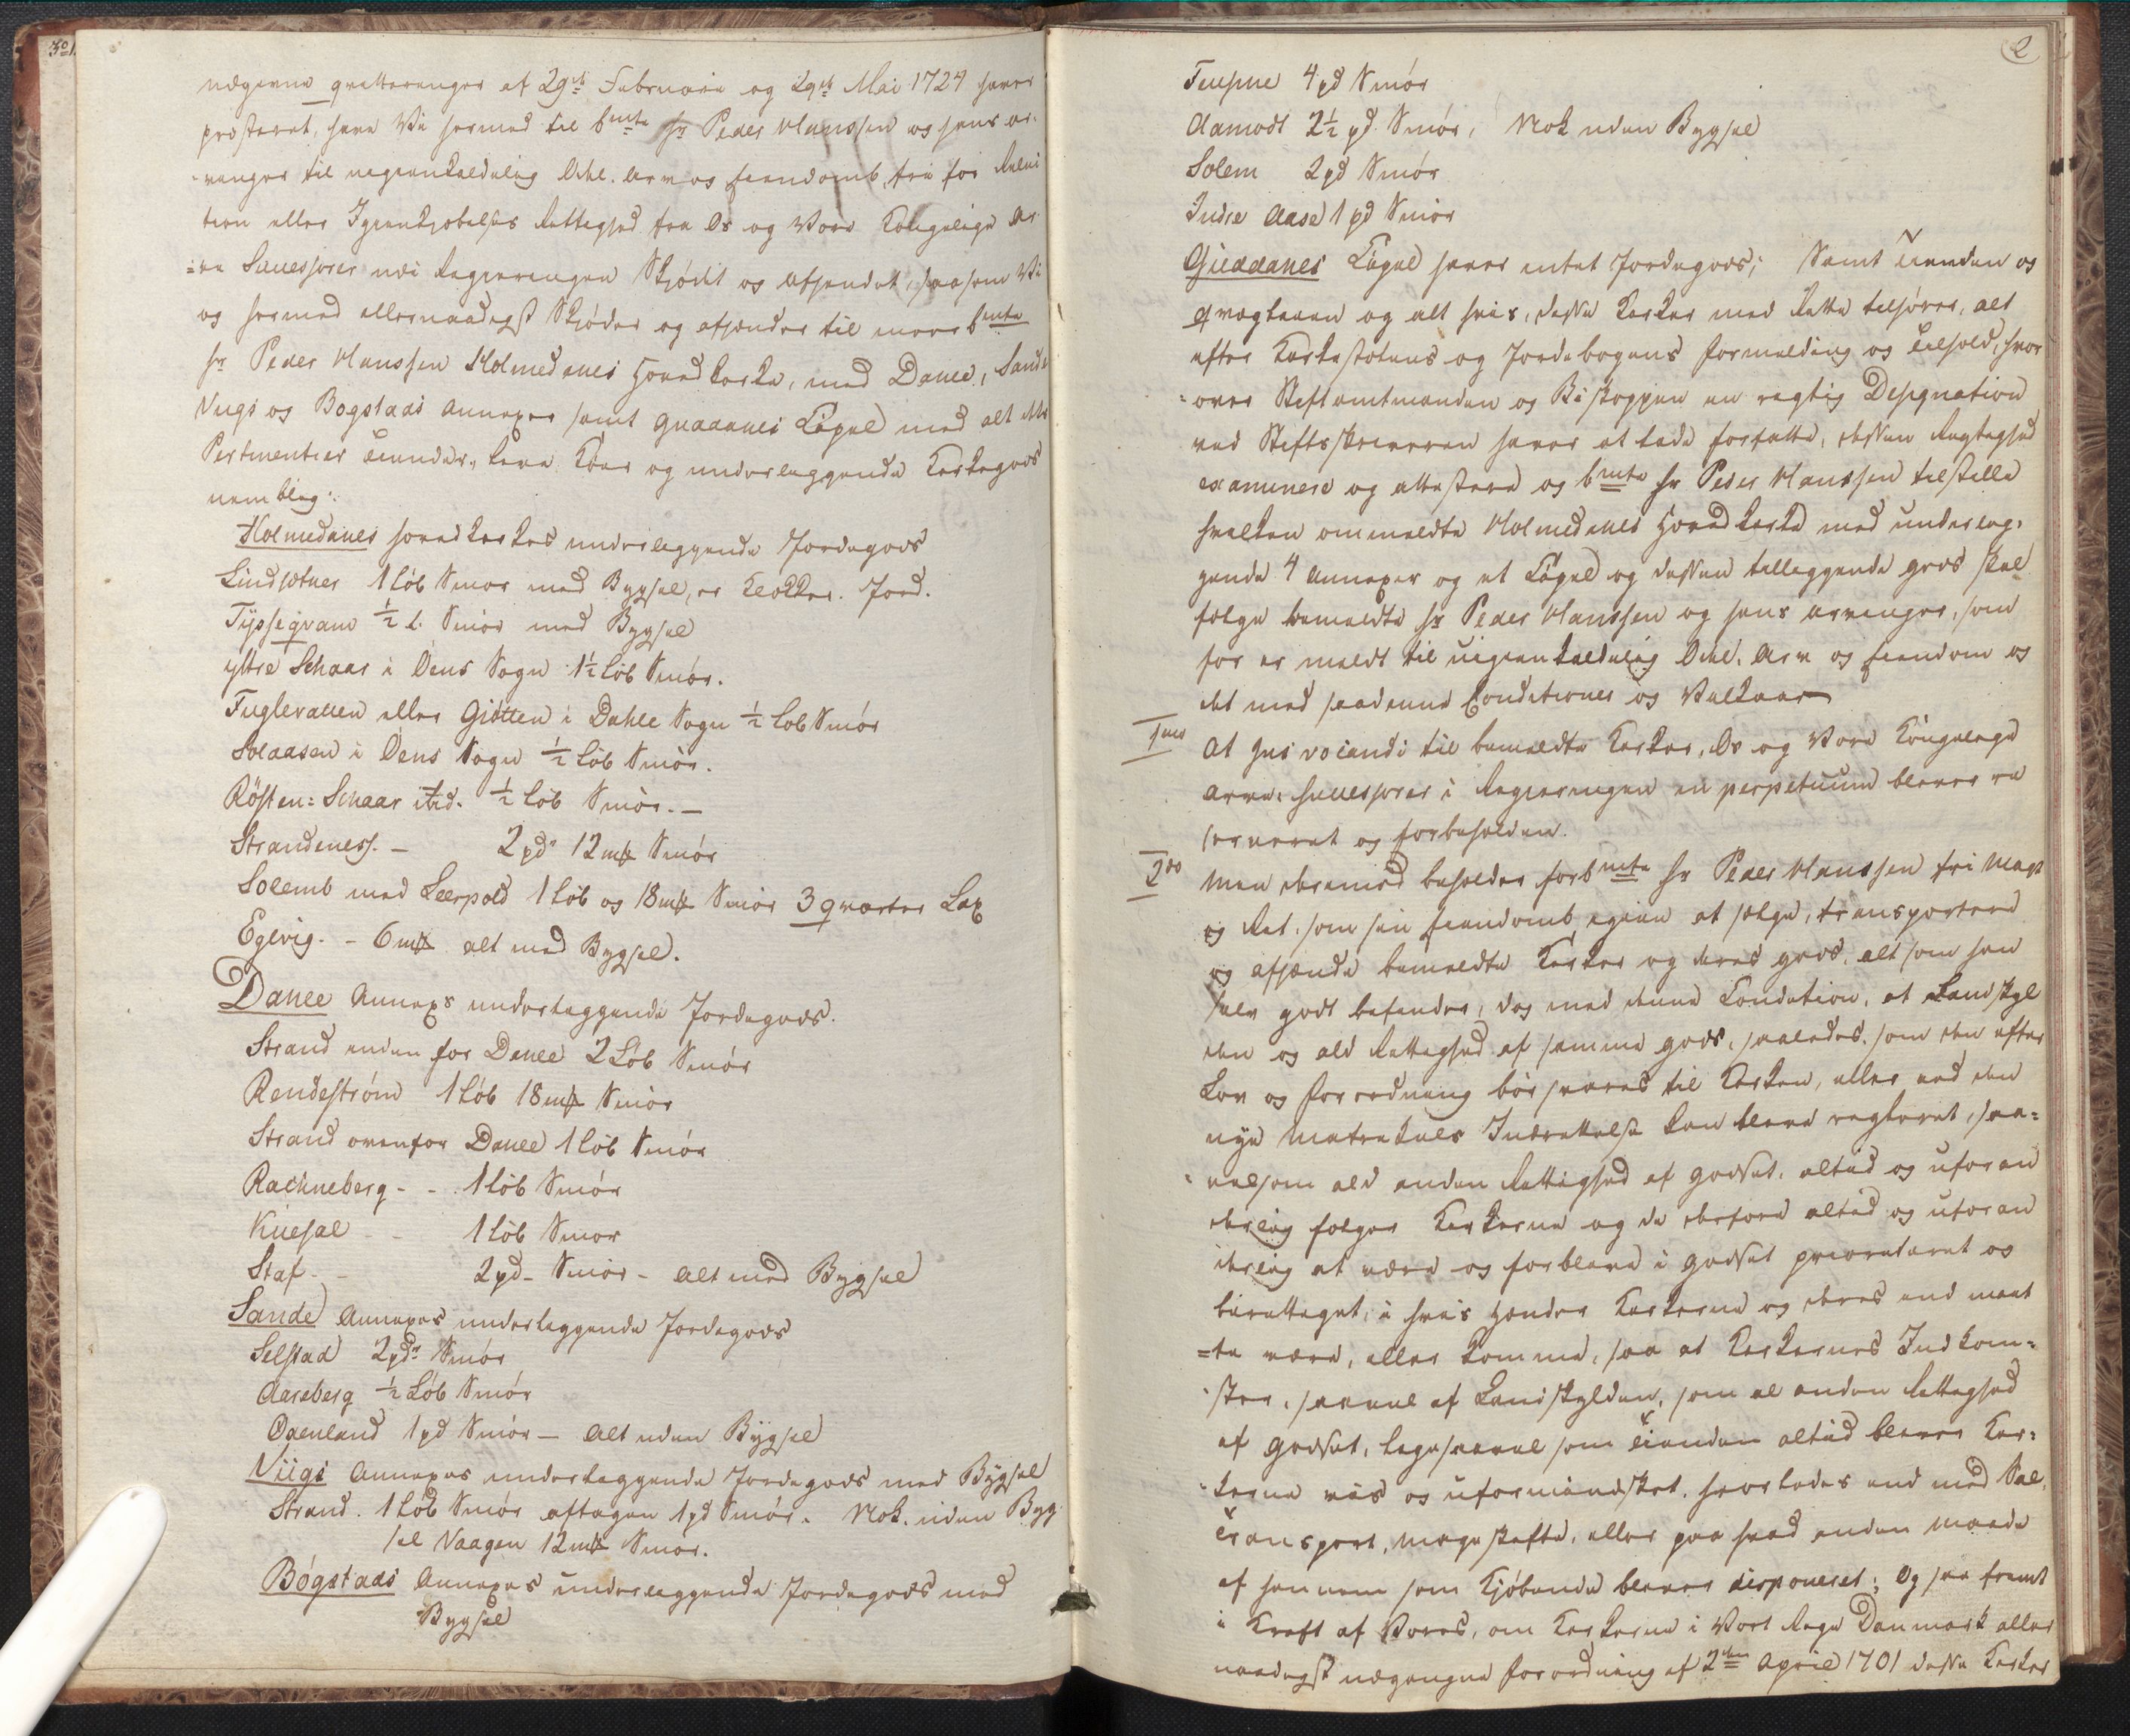 udgivne qvitteringer af 29de Februarii og 29de Mai 1724 haver
præsteret, have Vi hermed til bmte Hr Peder Hanssen og hans ar-
vinger til uigienkaldelig Odel. Arv og Eiendomb, fri for Relui
tion eller Igienkjøbelses Rettighed fra Os og Vore Kongelige Ar
ve Successorer udi Regieringen Skjødt og afhendet, saasom Vi
og hermed allernaadigst Skjøder og afhender til merbmte
Hr Peder Hanssen Holmedanes Hovedkirke, med Danee, Sande
Viigs og Bogstads Annexer samt Guddanes Capel med alt dets
Pertinentier Tiender, Leie Kiør og underliggende Kirkegods
nemblig:
Holmedanes hovedkirkes underliggende Jordegods
Lindsetner 1 Løb Smør med Bygsel, er Klokker. Jord.
Tÿsseqvam ½ L. Smør med Bygsel
yttre Schaar i Oens Sogn 1½ Løb Smør.
Fuglevatten eller Giøtten i Dahle Sogn ½ Løb Smør
Solaasen i Oens Sogn ½ Løb Smør.
Rösten: Schaar ibid. ½ Løb Smör. —
Strandeness. — 2 pd 12 mk Smør
Solemb med Leerpold 1 Løb og 18 mk Smør 3 qvarter Lax
Egevig. - 6 mk alt med Bygsel.
Danee Annexs underliggende Jordegods.
Strand neden for Danee 2 Løb Smör
Rendeström 1 Løb 18 mk Smør
Strand ovenfor Danee 1 Løb Smør
Rachneberg - - 1 Løb Smör
Knesal - - 1 Løb Smør
Staf - - 2 pd - Smør - Alt med Bygsel
Sande Annexes underliggende Jordegods
Selstad 2 pd Smør
Aareberg ½ Løb Smør
Oxenland 1 pd Smør — Alt uden Bygsel
Viigs Annexes underliggende Jordegods med Bÿgsel
Strand. 1 Løb Smør aftagen 1 pd Smør. Nok. uden Byg
sel Vaagen 12 mk Smør.
Bógstads Annexes underliggende Jordegods med
Bygsel
2
4 pd Smör
Aamodt 2½ pd. Smör, Nok uden Bygsel
Solem 2 pd Smör
Indre Aase 1 pd Smör
Guddanes Capel haver intet Jordegods; Samt Tienden og
qvægleien og alt hvis, disse Kirker med Rette tilhører, alt
efter Kirkestolens og Jordebogens formelding og Tilhold, hvor
over Stiftamtmanden og Biskoppen en rigtig Designation
ved Stiftsskriveren haver at lade forfatte, dessen Rigtighed
examinere og attestere og bmte Hr Peder Hanssen tilstille
hvilken ommeldte Holmedanes Hovedkirke med underlig-
gende 4 Annexer og et Capel og dessen tilliggende gods skal
følge bemeldte Hr Peder Hanssen og hans arvinger, som
før er meldt til uigienkaldelig Odel. Arv og Eiendom og
det med saadanne Conditioner og Vilkaar
1mo At Jus vocandi til bemeldte Kirker, Os og Vore Kongelige
Arve: Successorer i Regieringen in perpetuum bliver re
serveret og forbeholden.
2do Men derimod beholder forbmte Hr Peder Hanssen fri Magt
og Ret, som sin Eiendomb igien at sælge, transportere
og afhænde bemeldte Kirker og deres gods, alt som han
selv godt befinder, dog med denne Condition, at Landskyl
den og ald Rettighed af samme gods, saaledes som den efter
Lov og forordning bør svares til Kirken, eller ved den
nye Matrikuls Indrettelse kan blive reguleret, saa-
velsom ald anden Rettighed af godset, altid og uforan
derlig følger Kirkerne og da derfore altid og uforan
derlig at være og forblive i godset prioriteret og
berettiget, i hvis Hænder Kirkerne og deres end maat
te være, eller komme, saa at Kirkernes Indkom-
ster, saavel af Landskylden, som al anden Rettighed
af godset, ligesaavel som Tienden altid bliver Kir-
kerne vis og uformindsket, hvorledes end med Sal,
Transport, Mageskifte, eller paa hvad anden Maade
af hannem som Kjøbende bliver disponeret; Og saa fremt
i Kraft af Vores, om Kirkerne i Vort Rige Danmark aller
naadigst udgangne forordning af 2den April 1701 disse Kirker